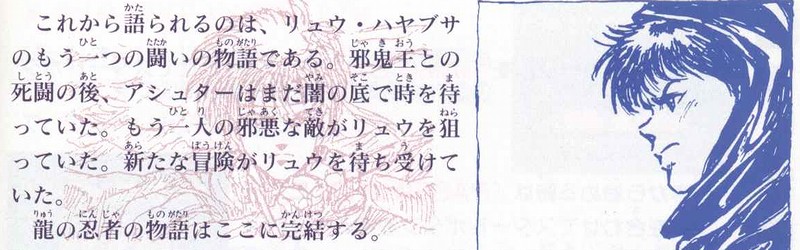 これから語られるのは、リュウ・ハヤブサ
のもう一つの闘いの物語である。邪鬼王との
死闘の後、アシュターはまだ闇の底で時を待
っていた。もう一人の邪悪な敵がリュウを狙
っていた。新たな冒険がリュウを待ち受けて
いた。
龍の忍者の物語はここに完結する。